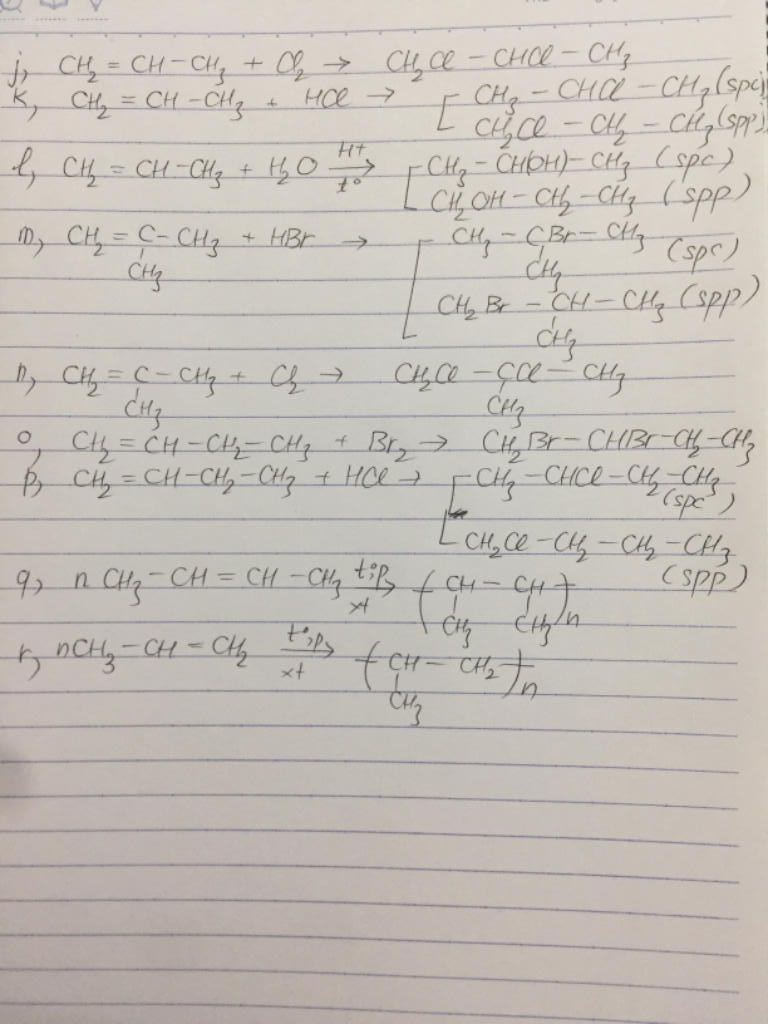 j, CH2 = CH - CH3 + Cl2 → CH2Cl - CHCl - CH3
k, CH2 = CH - CH3 + HCl → CH3 - CHCl - CH3 (spc)
CH2Cl - CH2 - CH3 (spp)
l, CH2 = CH - CH3 + H2O H+ t° → CH3 - CH(OH) - CH3 (spc)
CH2OH - CH2 - CH3 (spp)
m, CH2 = C - CH3 + HBr → CH3 - CBr - CH3 (spc)
CH3 CH3
CH2Br - CH - CH3 (spp)
CH3
n, CH2 = C - CH3 + Cl2 → CH2Cl - CCl - CH3
CH3 CH3
o, CH2 = CH - CH2 - CH3 + Br2 → CH2Br - CHBr - CH2 - CH3
p, CH2 = CH - CH2 - CH3 + HCl → CH3 - CHCl - CH2 - CH3
(spc)
CH2Cl - CH2 - CH2 - CH3
(spp)
q, n CH3 - CH = CH - CH3 t°,p xt → ( CH - CH )n
CH3 CH3
r, nCH3 - CH = CH2 t°,p xt → ( CH - CH2 )n
CH3